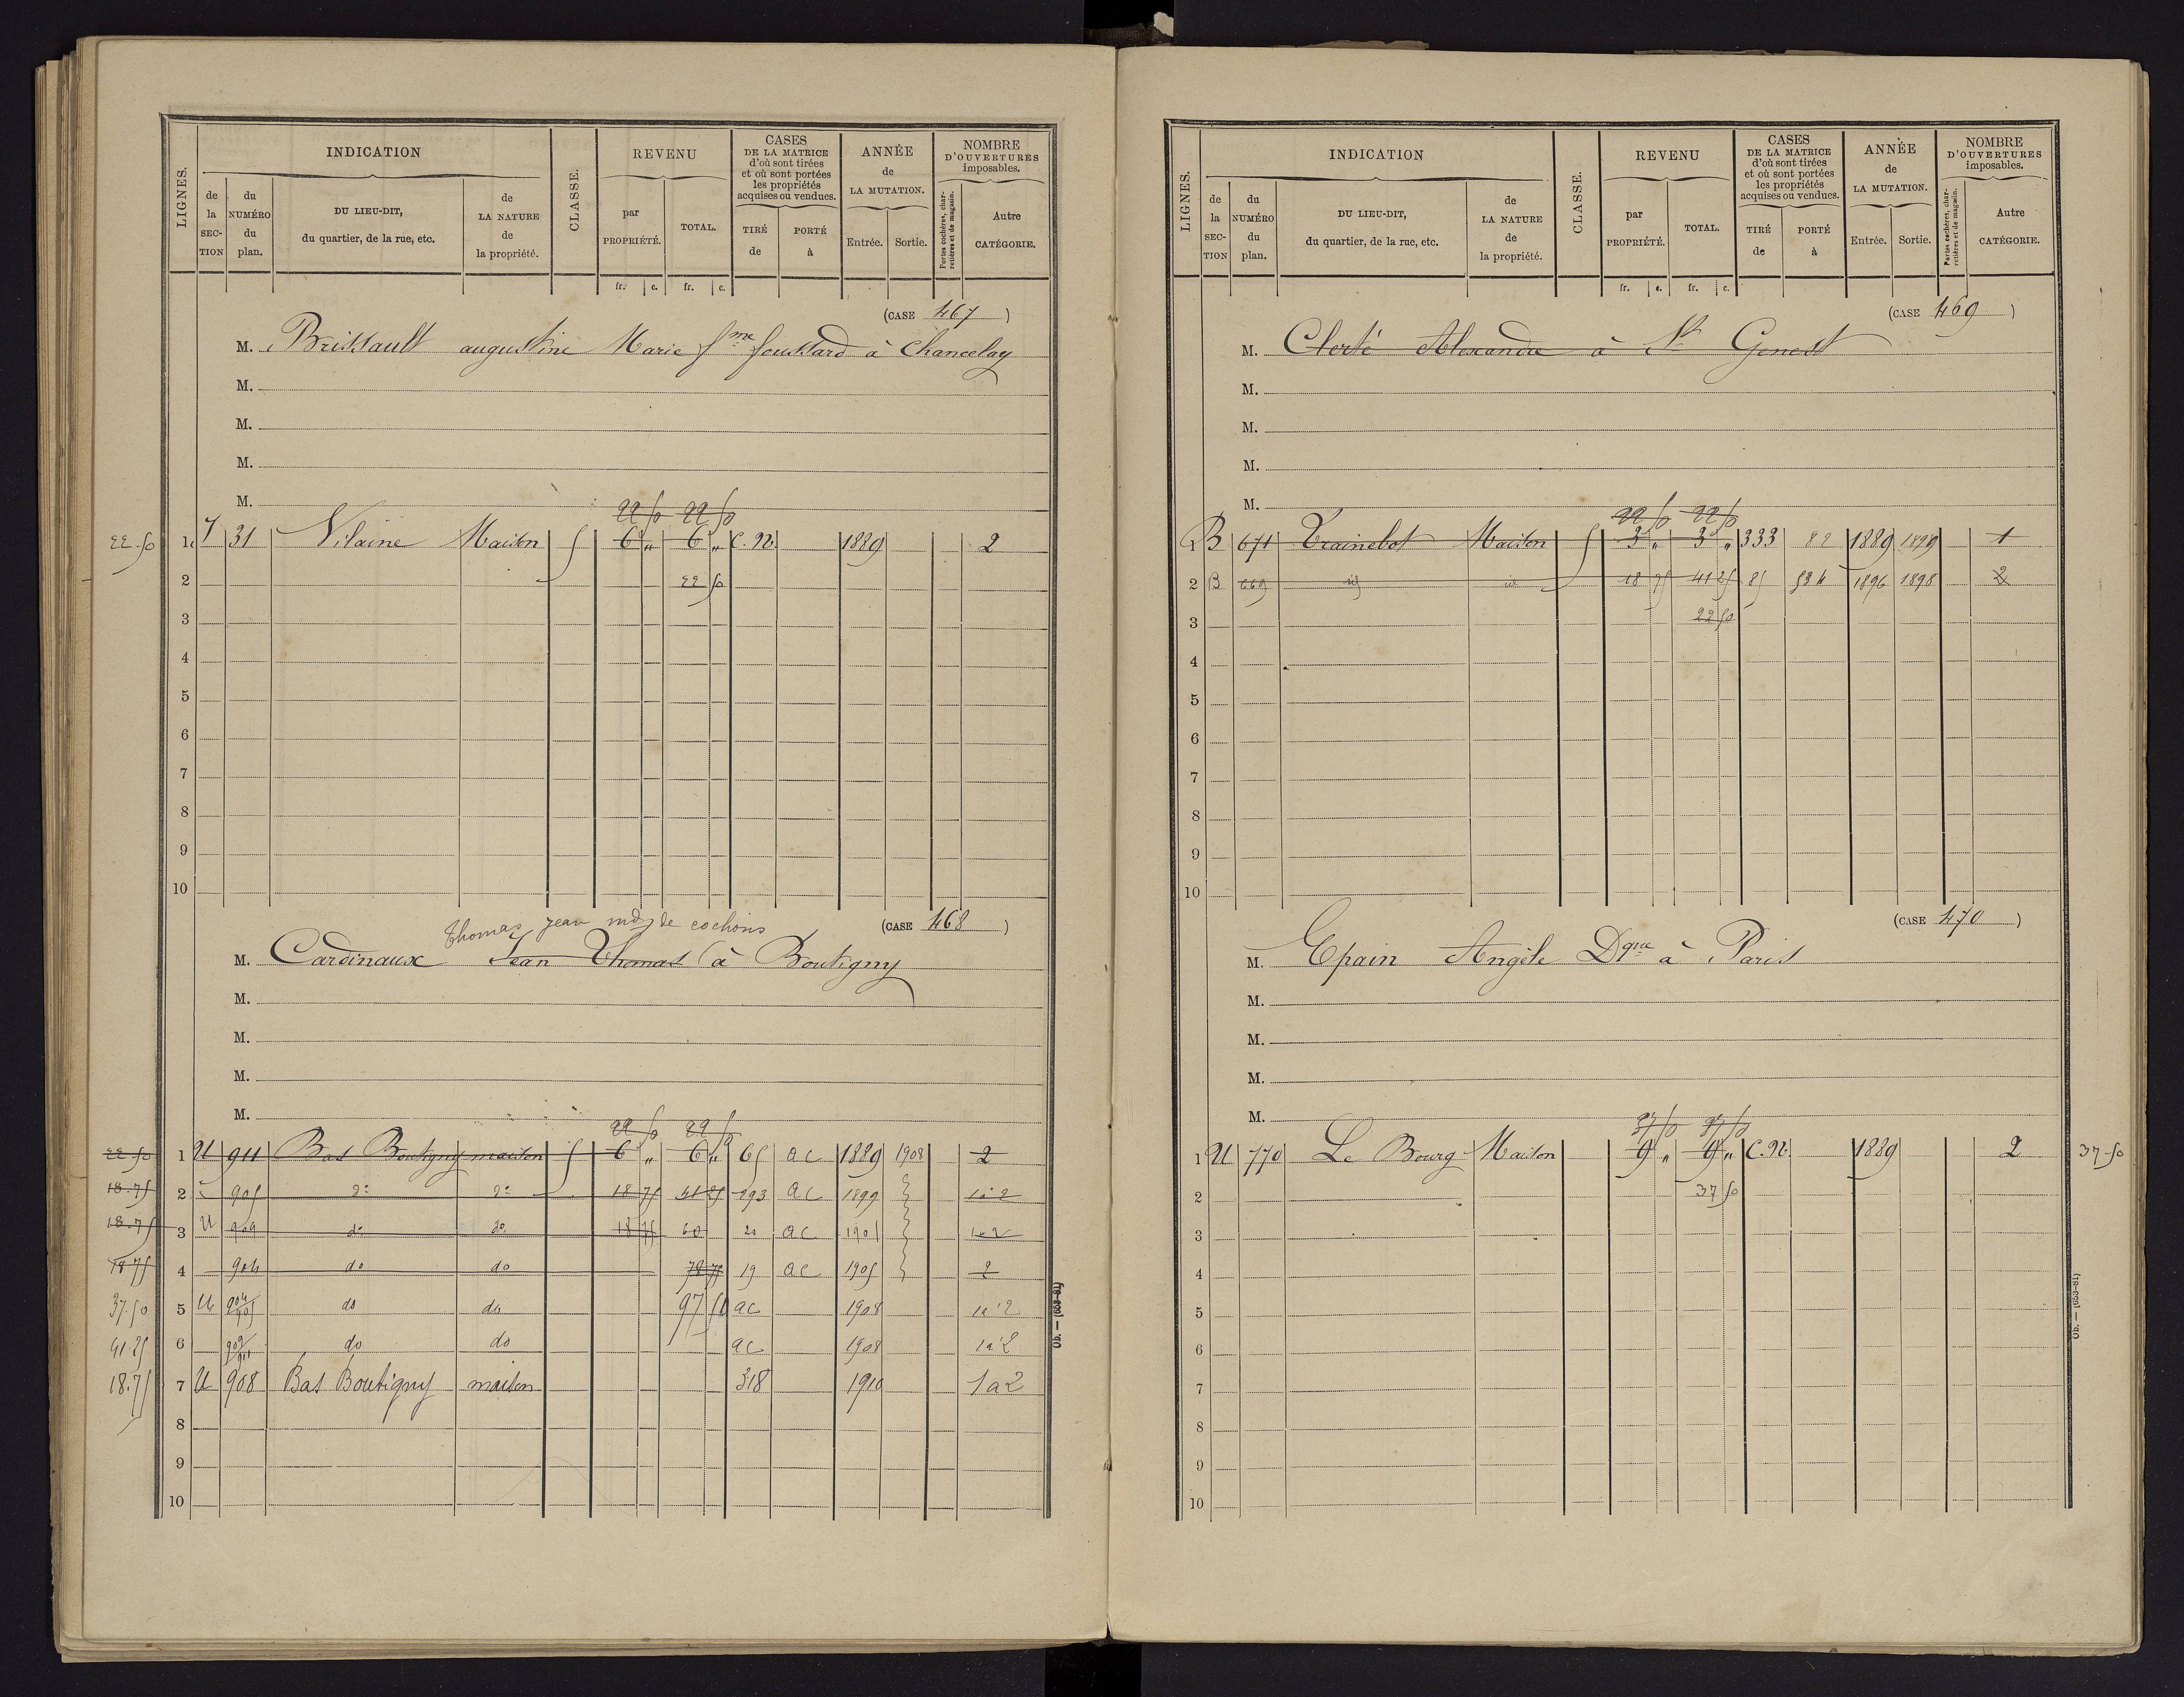 LIGNES. INDICATION CLASSE. REVENU CASES DE LA MATRICE d'où sont tirées et où sont portées les propriétés acquises ou vendues. ANNÉE de LA MUTATION. NOMBRE D'OUVERTURES imposables.
de la SECTION du NUMÉRO du plan. DU LIEU-DIT, du quartier, de la rue, etc. de LA NATURE de la propriété. par PROPRIÉTÉ. TOTAL. TIRÉ de PORTÉ à Entrée. Sortie. Portes cochères, charretières et de magasin. Autre CATÉGORIE.
fr. c. fr. c.
(CASE 467)
M. Brissault augustine Marie fme foussard à Chancelay
M.
M.
M.
M.
22 50 22 50
22.50 1 31 Vilaine Maison 6 " 6 " C.N. 1889 2
2 22 50
3
4
5
6
7
8
9
10
Thomas jean md de cochons (CASE 468)
M. Cardinaux Jean Thomas à Boutigny
M.
M.
M.
M.
22 50 22 50
22.50 1 U 911 Bas Boutigny maison 6 " 6 " 65 ac 1889 1908 2
18.75 2 905 do do 18 75 41 25 293 ac 1899 1 à 2
18.75 3 U 909 do do 18 75 60 20 ac 1901 1 à 2
18.75 4 904 do do 78 75 19 ac 1905 2
37.50 5 U 904/905 do do 97 50 ac 1908 1 à 2
41.25 6 909/911 do do ac 1908 1 à 2
18.75 7 U 908 Bas Boutigny maison 318 1910 1 a 2
8
9
10
Ob. — (653-81)
LIGNES. INDICATION CLASSE. REVENU CASES DE LA MATRICE d'où sont tirées et où sont portées les propriétés acquises ou vendues. ANNÉE de LA MUTATION. NOMBRE D'OUVERTURES imposables.
de la SECTION du NUMÉRO du plan. DU LIEU-DIT, du quartier, de la rue, etc. de LA NATURE de la propriété. par PROPRIÉTÉ. TOTAL. TIRÉ de PORTÉ à Entrée. Sortie. Portes cochères, charretières et de magasin. Autre CATÉGORIE.
fr. c. fr. c.
(CASE 469)
M. Clerté Alexandre à St Genest
M.
M.
M.
M.
22 50 22 50
1 B 671 Trainebot Maison 3 " 3 " 333 82 1889 1899 1
2 B 669 id id 18 75 41 25 85 534 1896 1898 2
3 22 50
4
5
6
7
8
9
10
(CASE 470)
M. Epain Angèle Dque à Paris
M.
M.
M.
M.
37 50 37 50
1 U 770 Le Bourg Maison 9 " 9 " C.N. 1889 2 37.50
2 37 50
3
4
5
6
7
8
9
10
Ob. — (653-81)